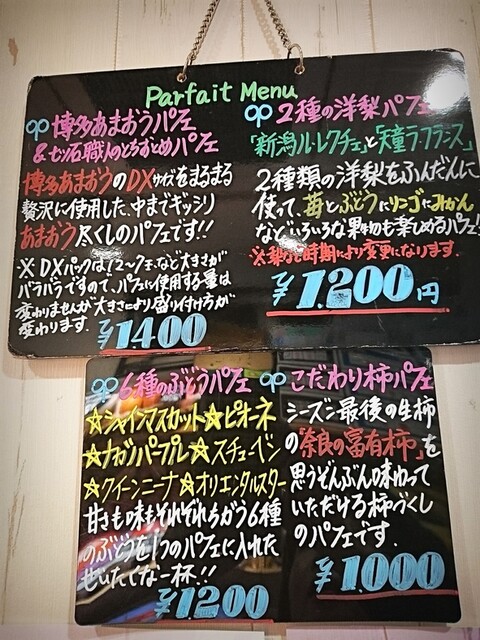 Parfait Menu
博多あまおうパフェ
&七ツ石職人のとちおとめパフェ
博多あまおうのDXサイズをまるまる
贅沢に使用した、中までギッシリ
あまおう尽くしのパフェです!!
※DXパックは12〜ケ玉など大きさが
バラバラですので、パフェに使用する量は
変わりませんが大きさにより盛り付け方が
変わります。
¥1400
2種の洋梨パフェ
「新潟ル・レクチェ」と「天童ラ・フランス」
2種類の洋梨をふんだんに
使って、苺とぶどうにリンゴにみかん
などいろいろな果物も楽しめるパフェ!
※梨など時期により変更になります。
¥1.200円
6種のぶどうパフェ
☆シャインマスカット☆ピオーネ
☆ナガノパープル☆スチューベン
☆クイーンニーナ☆オリエンタルスター
甘さも味もそれぞれちがう6種
のぶどうを1つのパフェに入れた
ぜいたくな一杯!!
¥1200
こだわり柿パフェ
シーズン最後の生柿
の「奈良の富有柿」を
思うぞんぶん味わって
いただける柿づくし
のパフェです。
¥1.000